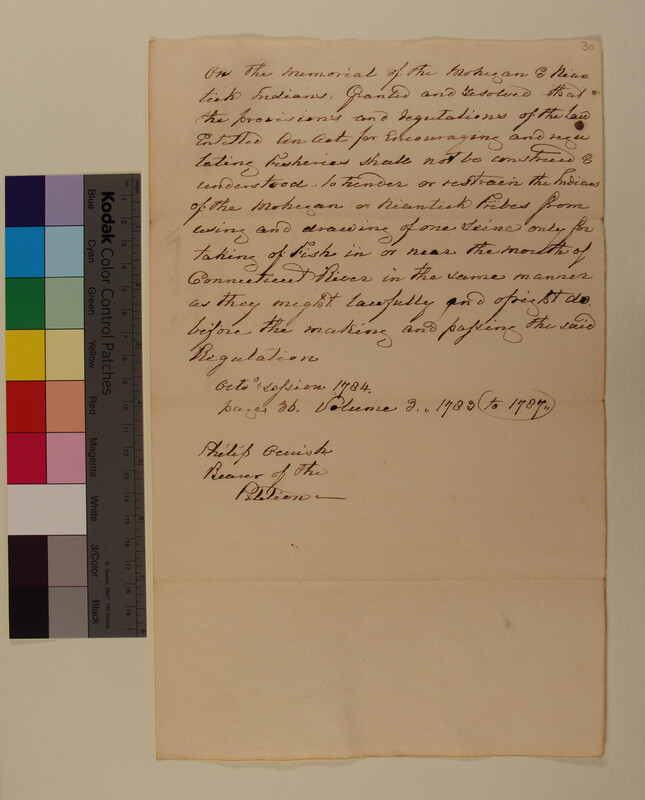 30
On the Memorial of the Mohegan & Nian
tick Indians. Granted and resolved that
the provisions and regulations of the law
Entitled An Act for Encouraging and regu
lating Fisheries shall not be construed &
understood.. to hinder or restrain the Indians
of the Mohegan or Niantick Tribes from
using and drawing of one Seine only for
taking of Fish in or near the mouth of
Connecticut River in the same manner
as they might lawfully and of right do
before the making and passing the said
Regulation
Octo. session 1784.
page 36. Volume 3.. 1783 (to 1787..)
Philip Occuish
Bearer of the
Petition
Kodak Color Control Patches
Blue
Cyan
Green
Yellow
Red
Magenta
White
3/Color
Black